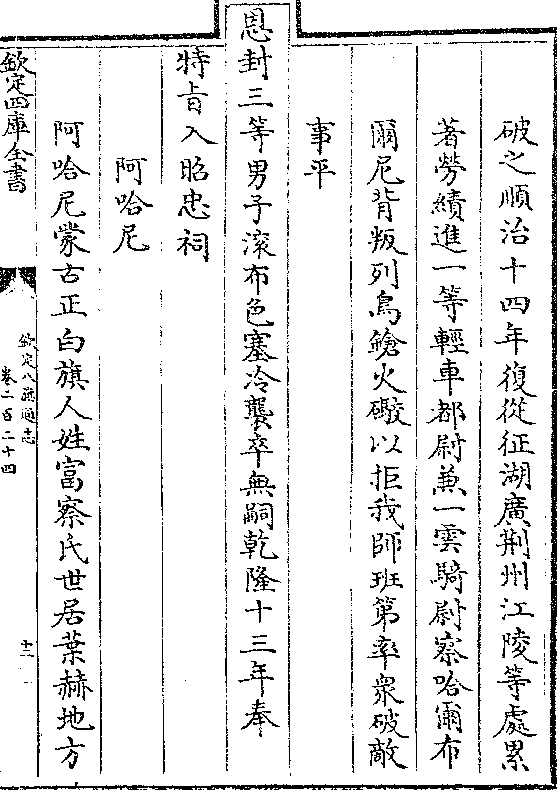 破之順治十四年復從征湖廣荆州江陵等處累
著勞績進一等輕車都尉兼一雲騎尉察哈爾布
爾尼背叛列鳥鎗火礮以拒我師班第率衆破敵
事平
恩封三等男子滚布色塞冷襲卒無嗣乾隆十三年奉
特旨入昭忠祠
阿哈尼
阿哈尼蒙古正白旗人姓富察氏世居葉赫地方
欽定四庫全書
欽定八旗通志
卷二百二十四
十三